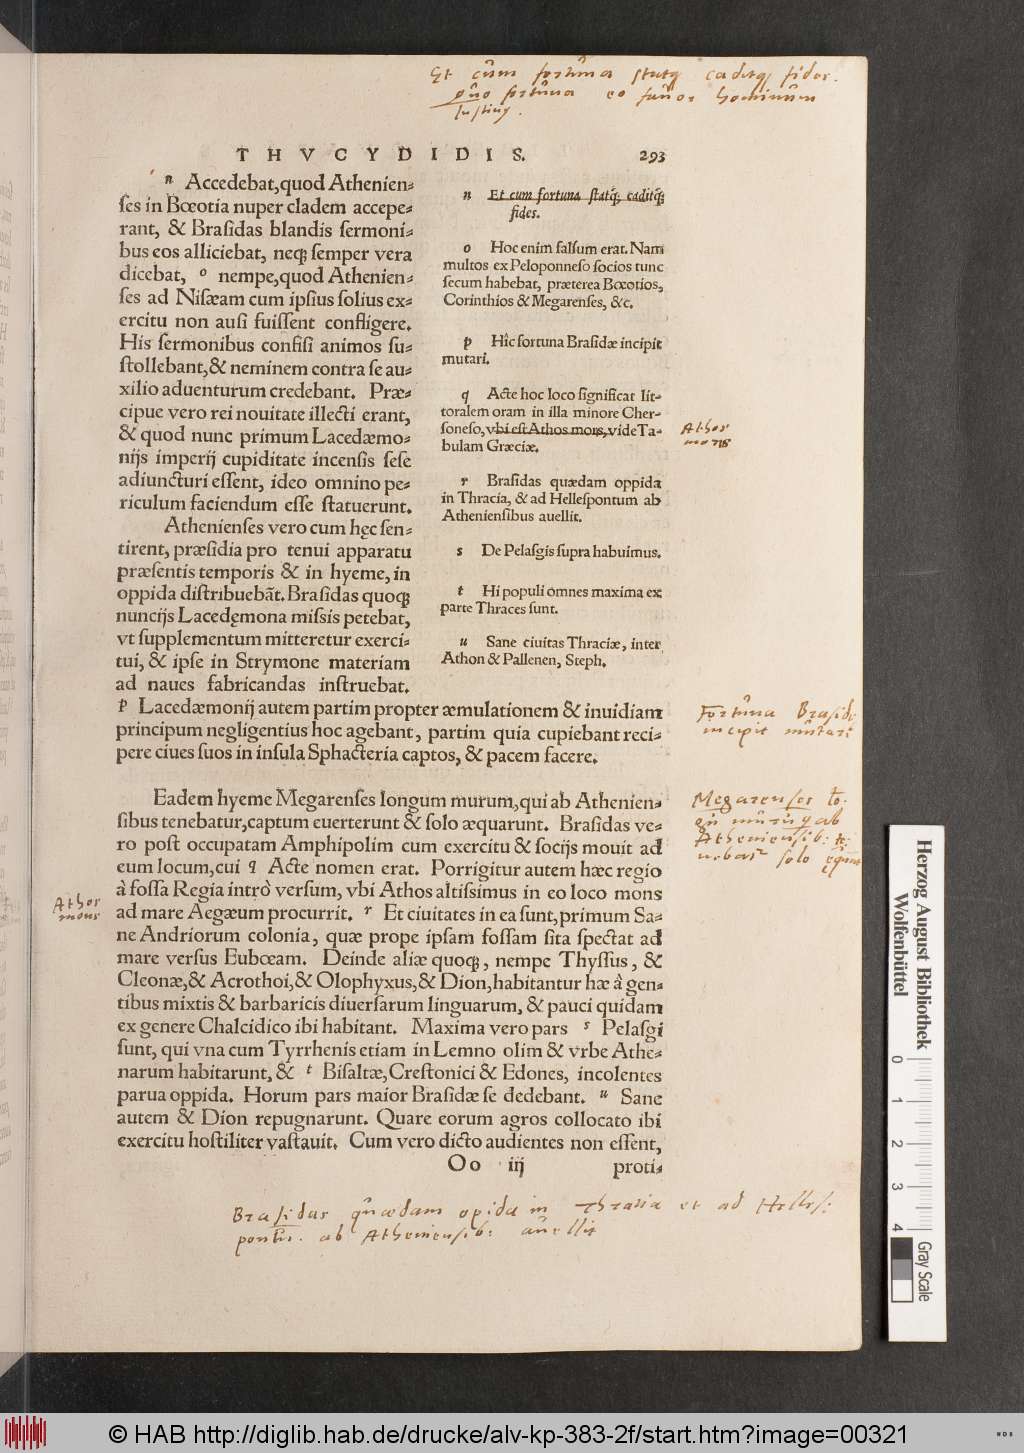 Et cum fortuna statq caditq fides.
quo fortuna eo favor hominum
Justing.
THVCYDIDIS. 293
n Accedebat, quod Athenien-
ſes in Bœotia nuper cladem accepe-
rant, & Braſidas blandis ſermoni-
bus eos alliciebat, neq; ſemper vera
dicebat, o nempe, quod Athenien-
ſes ad Niſæam cum ipſius ſolius ex-
ercitu non auſi fuiſſent confligere.
His ſermonibus confiſi animos ſu-
ſtollebant, & neminem contra ſe au-
xilio aduenturum credebant. Præ-
cipue vero rei nouitate illecti erant,
& quod nunc primum Lacedæmo-
nijs imperij cupiditate incenſis ſeſe
adiuncturi eſſent, ideo omnino pe-
riculum faciendum eſſe ſtatuerunt.
Athenienſes vero cum hęc ſen-
tirent, præſidia pro tenui apparatu
præſentis temporis & in hyeme, in
oppida diſtribuebāt. Braſidas quoq;
nuncijs Lacedęmona miſsis petebat,
vt ſupplementum mitteretur exerci-
tui, & ipſe in Strymone materiam
ad naues fabricandas inſtruebat.
n Et cum fortuna ſtatq́;, caditq́;
fides.
o Hoc enim falſum erat. Nam
multos ex Peloponneſo ſocios tunc
ſecum habebat, præterea Bœotios,
Corinthios & Megarenſes, &c.
p Hîc fortuna Braſidæ incipit
mutari.
q Acte hoc loco ſignificat lit-
toralem oram in illa minore Cher-
ſoneſo, vbi eſt Athos mons, vide Ta-
bulam Græciæ.
r Braſidas quædam oppida
in Thracia, & ad Helleſpontum ab
Athenienſibus auellit.
s De Pelaſgis ſupra habuimus.
t Hi populi omnes maxima ex
parte Thraces ſunt.
u Sane ciuitas Thraciæ, inter
Athon & Pallenen, Steph.
Athos
mons
p Lacedæmonij autem partim propter æmulationem & inuidiam
principum negligentius hoc agebant, partim quia cupiebant reci-
pere ciues ſuos in inſula Sphacteria captos, & pacem facere.
Fortuna Brasidæ
incipit mutari
Eadem hyeme Megarenſes longum murum, qui ab Athenien-
ſibus tenebatur, captum euerterunt & ſolo æquarunt. Braſidas ve-
ro poſt occupatam Amphipolim cum exercitu & ſocijs mouit ad
eum locum, cui q Acte nomen erat. Porrigitur autem hæc regio
à foſſa Regia intrò verſum, vbi Athos altiſsimus in eo loco mons
ad mare Aegæum procurrit. r Et ciuitates in ea ſunt, primum Sa-
ne Andriorum colonia, quæ prope ipſam foſſam ſita ſpectat ad
mare verſus Eubœam. Deinde aliæ quoq;, nempe Thyſſus, &
Cleonæ, & Acrothoi, & Olophyxus, & Dion, habitantur hæ à gen-
tibus mixtis & barbaricis diuerſarum linguarum, & pauci quidam
ex genere Chalcidico ibi habitant. Maxima vero pars s Pelaſgi
ſunt, qui vna cum Tyrrhenis etiam in Lemno olim & vrbe Athe-
narum habitarunt, & t Biſaltæ, Creſtonici & Edones, incolentes
parua oppida. Horum pars maior Braſidæ ſe dedebant. u Sane
autem & Dion repugnarunt. Quare eorum agros collocato ibi
exercitu hoſtiliter vaſtauit. Cum vero dicto audientes non eſſent,
Oo iij proti-
Megarenses
ab
Atheniensib:
solo
Athos
mons
Brasidas quædam opida in Thratia et ad Helles:
pontu. ab Atheniensib: auellit
Herzog August Bibliothek
Wolfenbüttel
0 1 2 3 4
Gray Scale
© HAB http://diglib.hab.de/drucke/alv-kp-383-2f/start.htm?image=00321